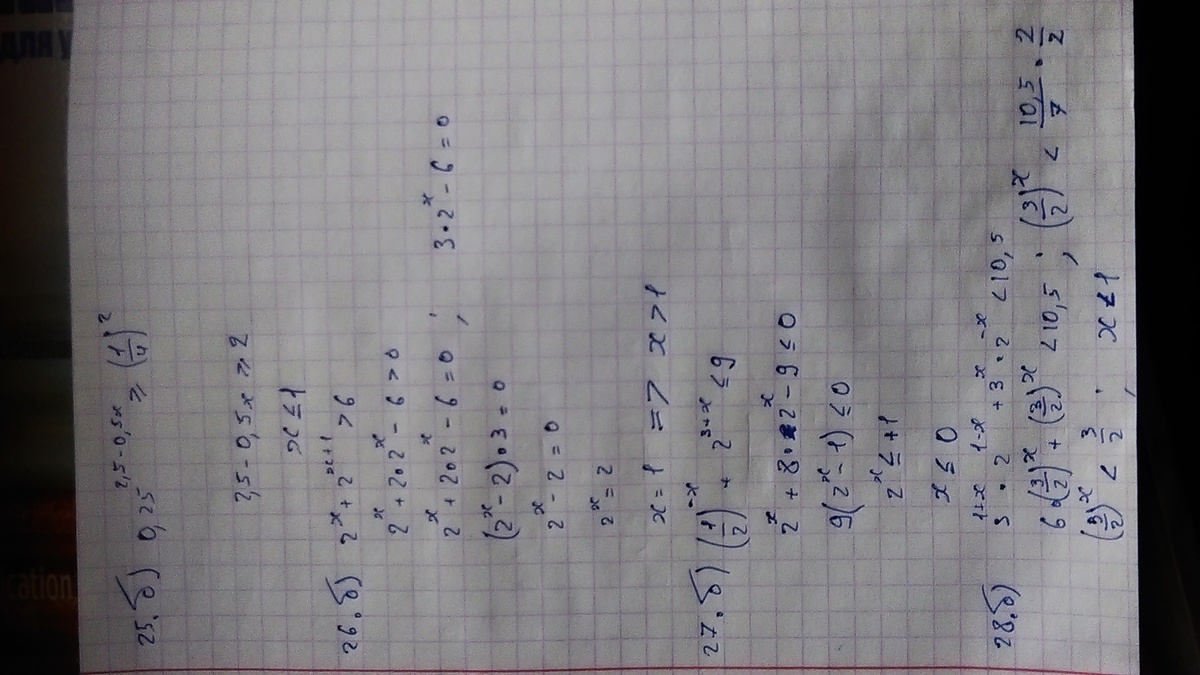 25.б) 0,25^(2,5-0,5x) ⩾ (1/4)^2
2,5-0,5x ⩾ 2
x ≤ 1
26.б) 2^x + 2^(x+1) > 6
2^x + 2•2^x - 6 > 0
2^x + 2•2^x - 6 = 0 ; 3•2^x - 6 = 0
(2^x - 2)•3 = 0
2^x - 2 = 0
2^x = 2
x = 1 => x > 1
27.б) (1/2)^(-x) + 2^(3+x) ≤ 9
2^x + 8•2^x - 9 ≤ 0
9(2^x - 1) ≤ 0
2^x ≤ +1
x ≤ 0
28.б) 3^(1+x) • 2^(1-x) + 3^x • 2^(-x) < 10,5
6•(3/2)^x + (3/2)^x < 10,5 ; (3/2)^x < 10,5/7 • 2/2
(3/2)^x < 3/2 ; x < 1
для у
cation.